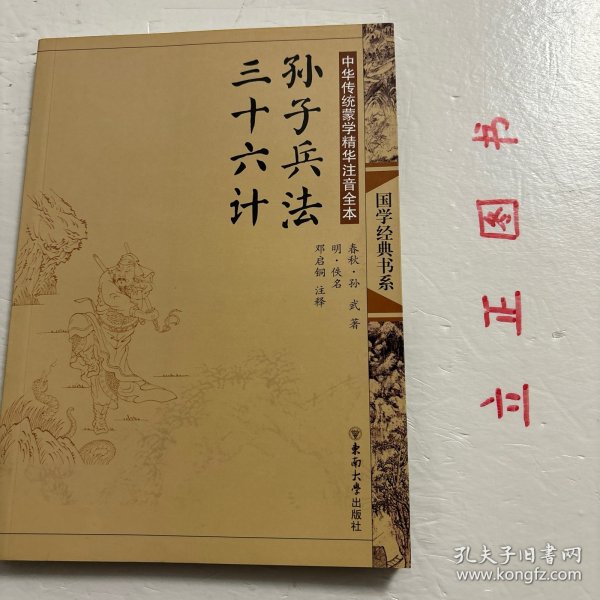 中华传统蒙学精华注音全本
孙子兵法
三十六计
国学经典书系
春秋·孙 武 著
明·佚名
邓启铜 注释
东南大学出版社
立正图书
孔夫子旧书网
www.kongfz.com